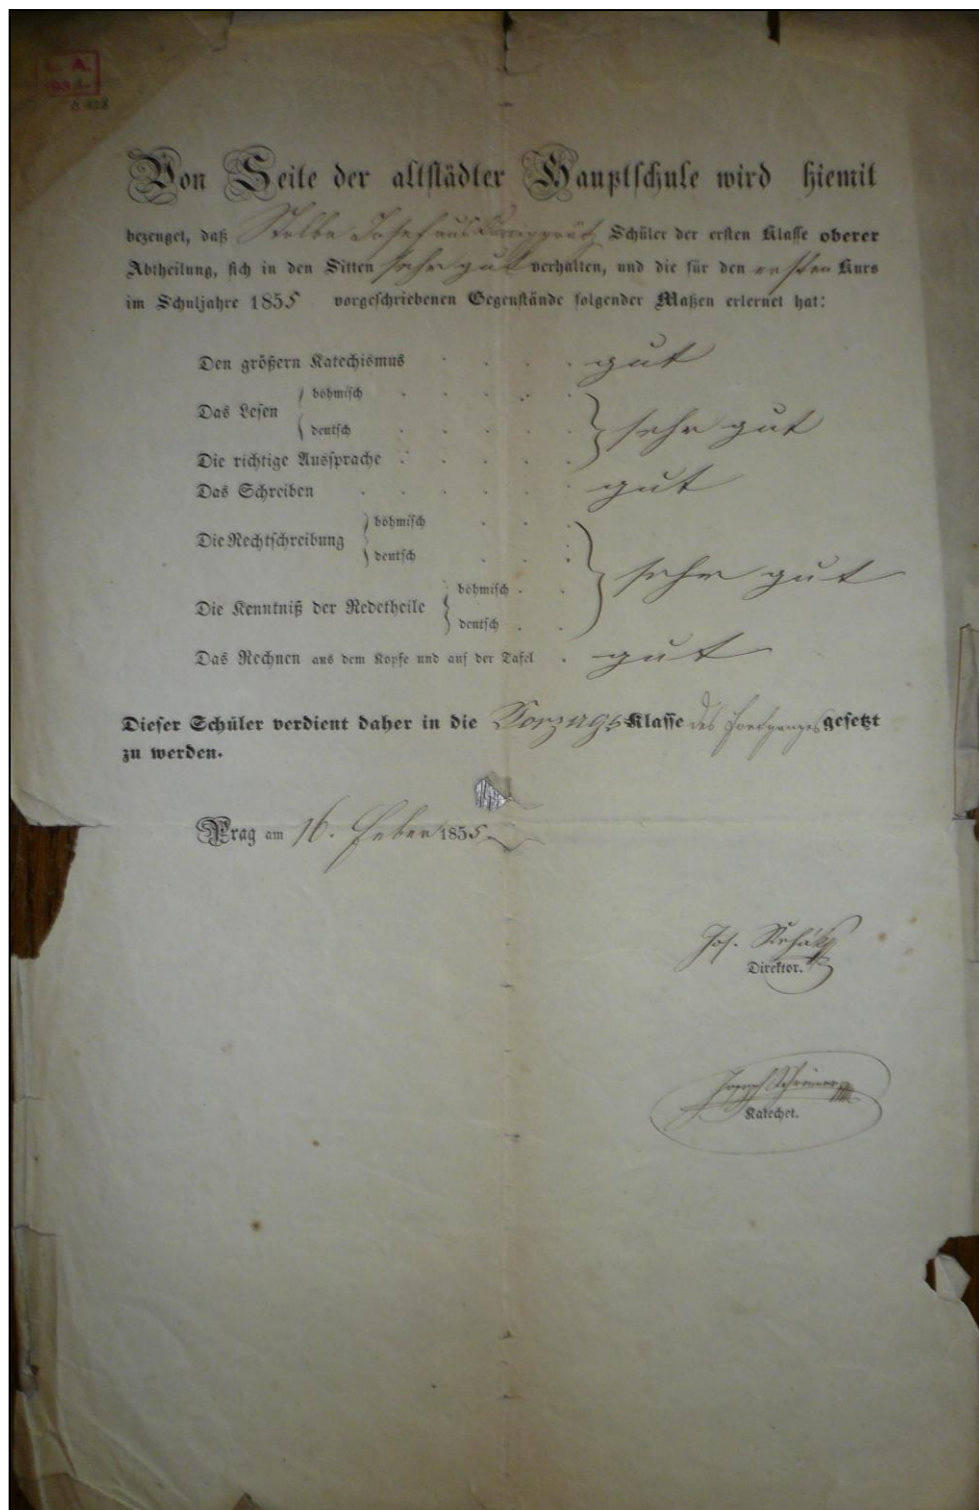 L. A.
Von Seite der altstädter Hauptschule wird hiemit
bezeuget, daß Josef aus Schüler der ersten Klasse oberer
Abtheilung, sich in den Sitten sehr gut verhalten, und die für den ersten Kurs
im Schuljahre 1855 vorgeschriebenen Gegenstände folgender Maßen erlernet hat:
Den größern Katechismus . . . . gut
böhmisch . . . . .
Das Lesen
deutsch . . . . . sehr gut
Die richtige Aussprache . . . . .
Das Schreiben . . . . . . gut
böhmisch . . .
Die Rechtschreibung
deutsch . . .
sehr gut
böhmisch . .
Die Kenntniß der Redetheile
deutsch . .
Das Rechnen aus dem Kopfe und auf der Tafel . gut
Dieser Schüler verdient daher in die Vorzugs Klasse des Fortganges gesetzt
zu werden.
Prag am 16. Feber 1855
Jos. Řehák
Direktor.
Joseph
Katechet.